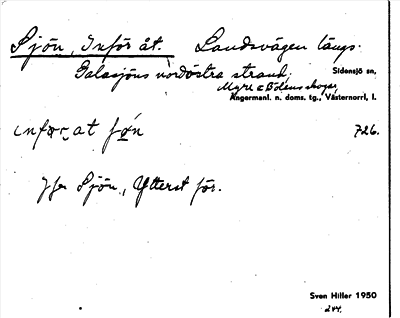 Sjön, Inför åt. Landsvägen längs.
Galasjöns nordöstra strand,
Sidensjö sn,
Myre o Bölens skogar,
Ångermanl. n. doms. tg., Västernorrl. l.
726.
Jfr Sjön, Ytterst för.
Sven Hiller 1950
244.